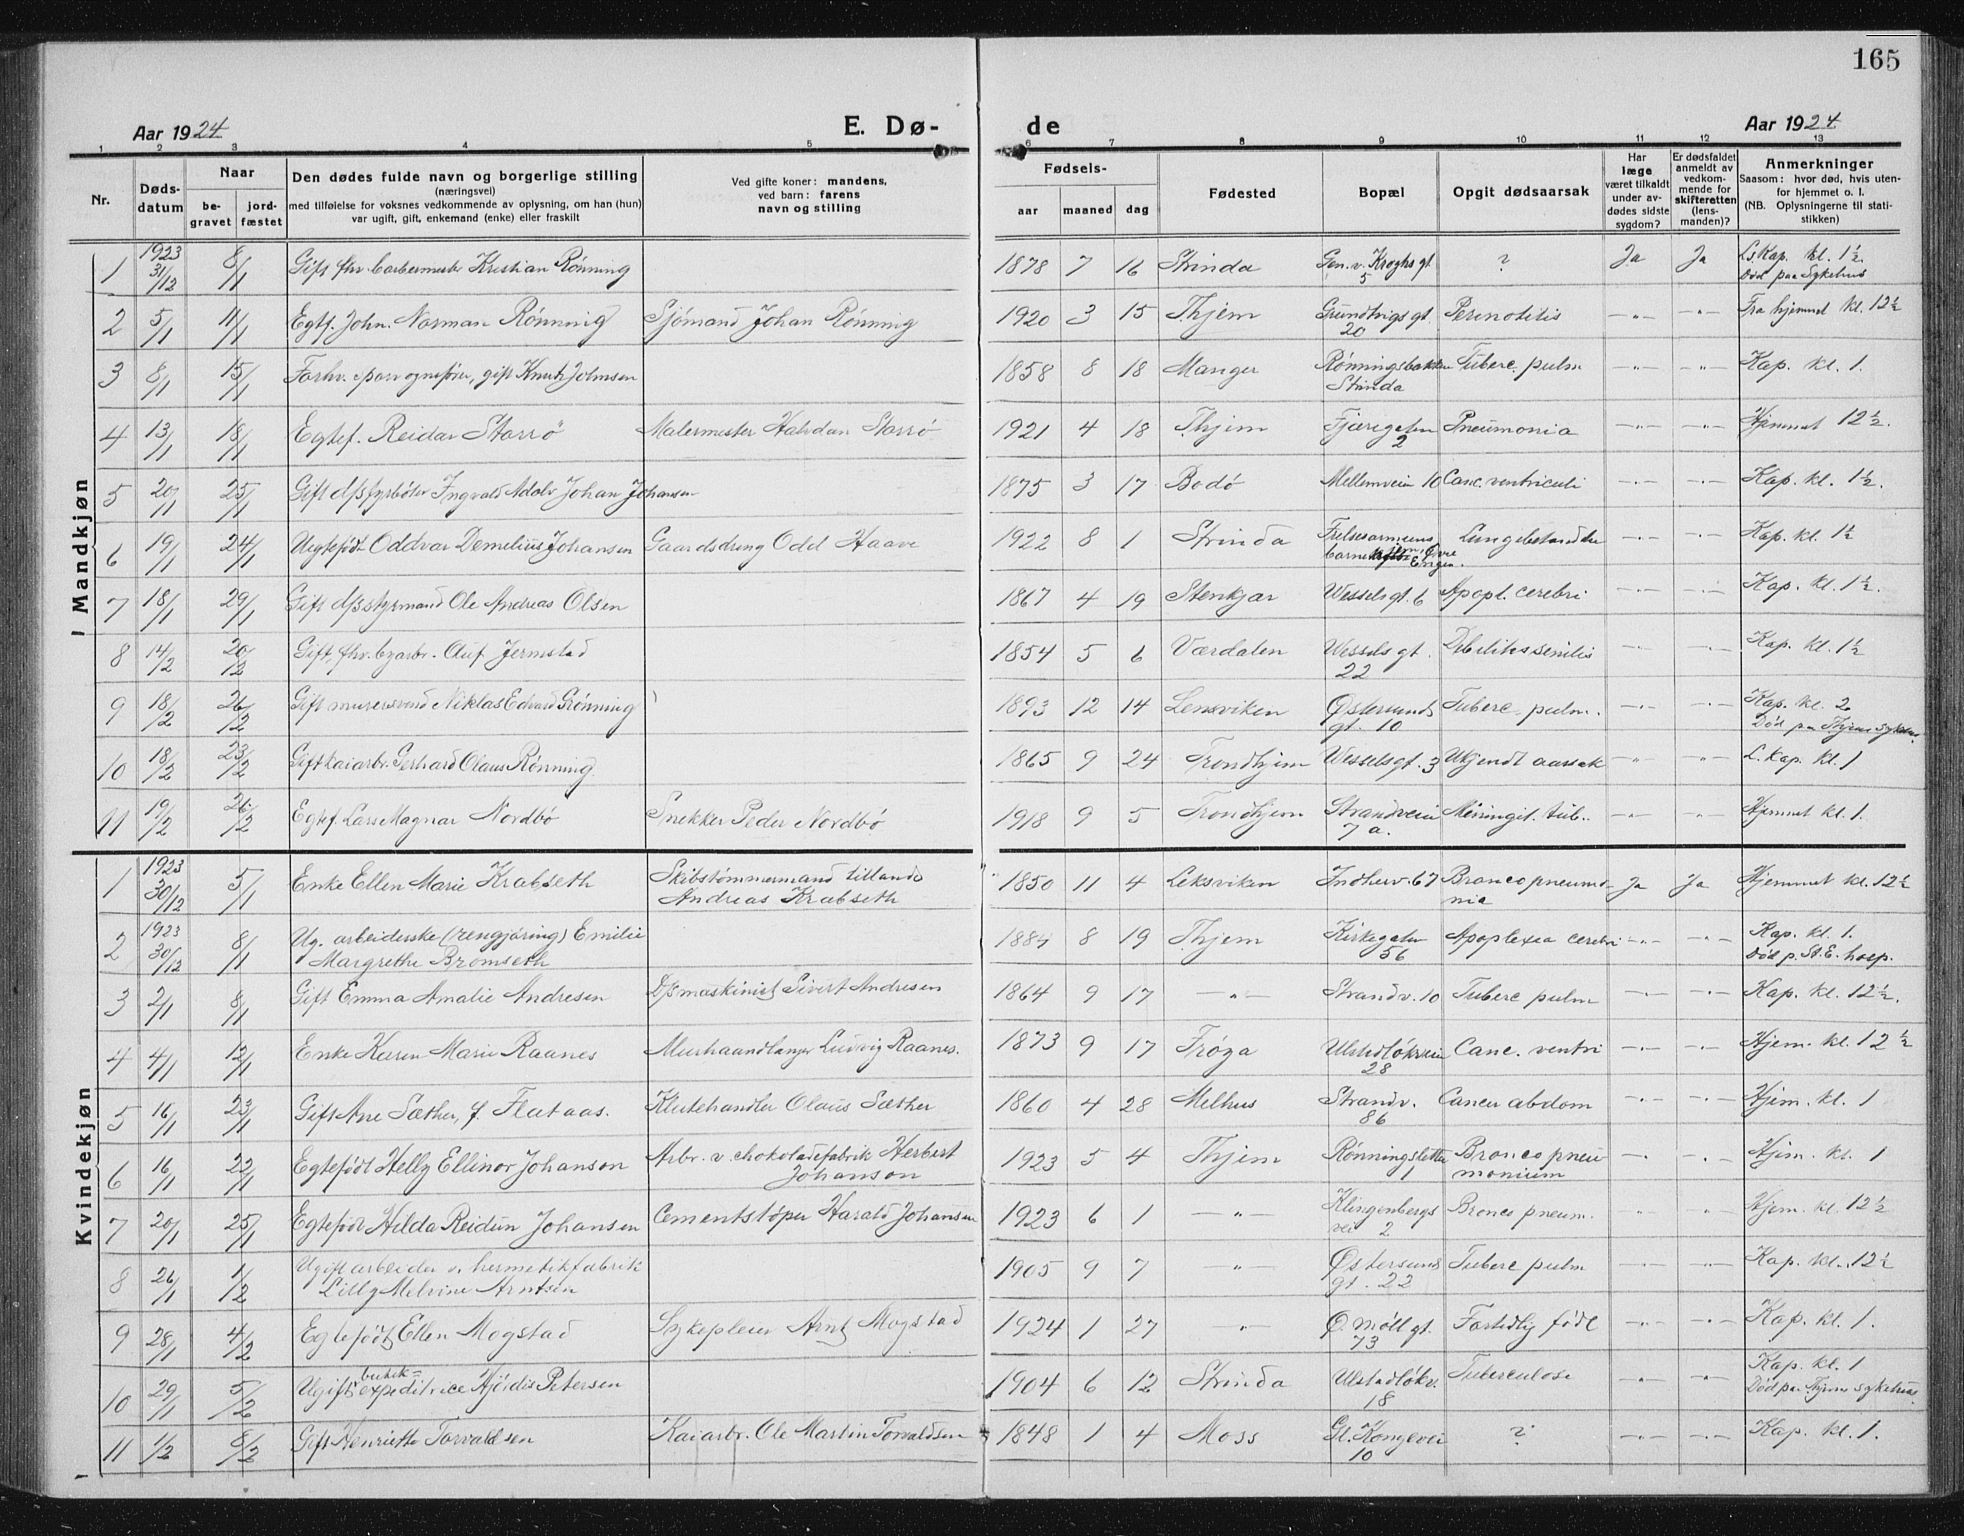 165
Aar 1924 E. Dø- de Aar 1924
1 2 3 4 5 6 7 8 9 10 11 12 13
Nr. Døds-datum Naar be-gravet jord-fæstet Den dødes fulde navn og borgerlige stilling (næringsvei) med tilføielse for voksnes vedkommende av oplysning, om han (hun) var ugift, gift, enkemand (enke) eller fraskilt Ved gifte koner: mandens, ved barn: farens navn og stilling Fødsels- aar maaned dag Fødested Bopæl Opgit dødsaarsak Har læge været tilkaldt under av-dødes sidste sygdom? Er dødsfaldet anmeldt av vedkom-mende for skifteretten (lens-manden)? Anmerkninger Saasom: hvor død, hvis uten-for hjemmet o. l. (NB. Oplysningerne til stati-stikken)
Mandkjøn
1 1923 31/12 8/1 Gift fhv. barbermester Kristian Rønning 1878 7 16 Strinda Gen. v. Kroghs gt. 5 ? Ja Ja L. Kap. kl. 1½. Død paa Sykehus
2 5/1 11/1 Egtf. John. Norman Rønning Sjömand Johan Rønning 1920 3 15 Thjem Grundtvigs gt. 20 Perinotitis -"- -"- Fra hjemmet kl. 12½
3 8/1 15/1 Forhv. sporvognsfører, gift Knut Johnsen 1858 8 18 Manger Rønningsbakken Strinda Tuberc. pulm -"- -"- Kap. kl. 1.
4 13/1 18/1 Egtef. Reidar Storrö Malermester Halvdan Storrö 1921 4 18 Thjem Fjærigaten 2 Pneumonia -"- -"- Hjemmet 12½.
5 20/1 25/1 Gift d/s fyrbøter Ingvald Adolv Johan Johansen 1875 3 17 Bodö Mellemveien 10 Canc. ventriculi -"- -"- Kap. kl. 1½.
6 19/1 24/1 Uegtefödt Oddvar Demelius Johansen Gaardsdreng Odd Haave 1922 8 1 Strinda Frelsesarmeens barnehjem, Øvre Engen. Lungebetændelse -"- -"- Kap. kl. 1½
7 18/1 29/1 Gift d/s styrmand Ole Andreas Olsen 1867 4 19 Stenkjær Wesselsgt. 6 Apopl. cerebri -"- -"- Kap. kl. 1½.
8 14/2 20/12 Gift, fhv. byarbr. Oluf Jermstad 1854 5 6 Værdalen Wessels gt. 22 Debilitas senilis -"- -"- Kap. kl. 1½
9 18/2 26/12 Gift murersvend Niklas Edvard Grönning 1893 12 14 Lensviken Østersunds gt. 10 Tuberc. pulm. -"- -"- Kap. kl. 2 Død paa Thjems sykehus
10 18/2 23/2 Gift kaiarbr. Gerhard Olaus Rønning 1865 9 24 Trondhjem Wesselsgt. 3 Ukjendt aarsak -"- -"- L. Kap. kl. 1
11 19/2 26/2 Egtef. Lars Magnar Nordbö Snekker Peder Nordbö 1918 9 5 Trondhjem Strandveien 7 a. Meningit. tub. -"- -"- Hjemmet kl. 1.
Kvindekjøn
1 1923 30/12 5/1 Enke Ellen Marie Krabseth Skibstömmermand tillands Andreas Krabseth 1850 11 4 Leksviken Indherv. 67 Bronco pneumonia Ja Ja Hjemmet kl. 12½
2 1923 30/12 8/1 Ug. arbeiderske (rengjöring) Emilie Margrethe Bromseth 1884 8 19 Thjem Kirkegaten 56 Apoplexia cerebri -"- -"- Kap. kl. 1. Død p. St. E. hosp.
3 2/1 8/1 Gift Emma Amalie Andresen D/s maskinist Sivert Andresen 1864 9 17 -"- Strandv. 10 Tuberc pulm -"- -"- Kap. kl. 12½.
4 4/1 12/1 Enke Karen Marie Raanes Murhaandlanger Ludvig Raanes. 1873 9 17 Fröya Ulstadlökveien 28 Canc. ventri -"- -"- Hjem. kl. 12½
5 16/1 23/1 Gift Ane Sæther, f. Flataas. Klutehandler Olaus Sæther 1860 4 28 Melhus Strandv. 86 Cancer abdom -"- -"- Hjem. kl. 1
6 16/1 22/1 Egtefödt Helly Ellinor Johanson Arbr. v. chokoladefabrik Herbert Johanson 1923 5 4 Thjem Rønningsletta 1 Bronco pneumonium -"- -"- Hjem. kl. 1
7 20/1 25/1 Egtefödt Hilda Reidun Johansen Cementstöper Harald Johansen 1923 6 1 -"- Klingenbergs vei 2 Bronco pneum. -"- -"- Hjem. kl. 12½
8 26/1 1/2 Ugift arbeider v. hermetikfabrik Lilly Melvine Arntsen 1905 9 7 -"- Østersunds gt. 22 Tuberc pulm -"- -"- Kap. kl. 12½
9 28/1 4/2 Egtefödt Ellen Mogstad Sykepleier Arnt Mogstad 1924 1 27 -"- Ø. Möll gt. 73 Fortidlig födt -"- -"- Kap. kl. 1.
10 29/1 5/2 Ugift butik= expeditrice Hjördis Petersen 1904 6 12 Strinda Ulstadlökv. 18 Tuberculose -"- -"- Kap. kl. 1 Död paa Thjems sykehus
11 1/2 8/2 Gift Henriette Torvaldsen Kaiarbr. Ole Martin Torvaldsen 1848 1 4 Moss Gl. Kongevei 10 ? -"- -"- Kap. kl. 1.